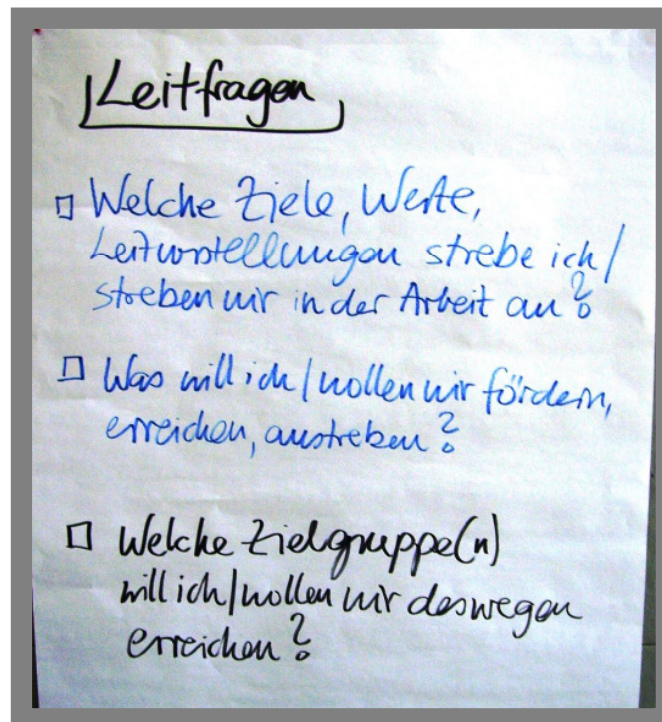 Leitfragen
Welche Ziele, Werte,
Leitvorstellungen strebe ich/
streben wir in der Arbeit an?
Was will ich/wollen wir fördern,
erreichen, anstreben?
Welche Zielgruppe(n)
will ich/wollen wir deswegen
erreichen?